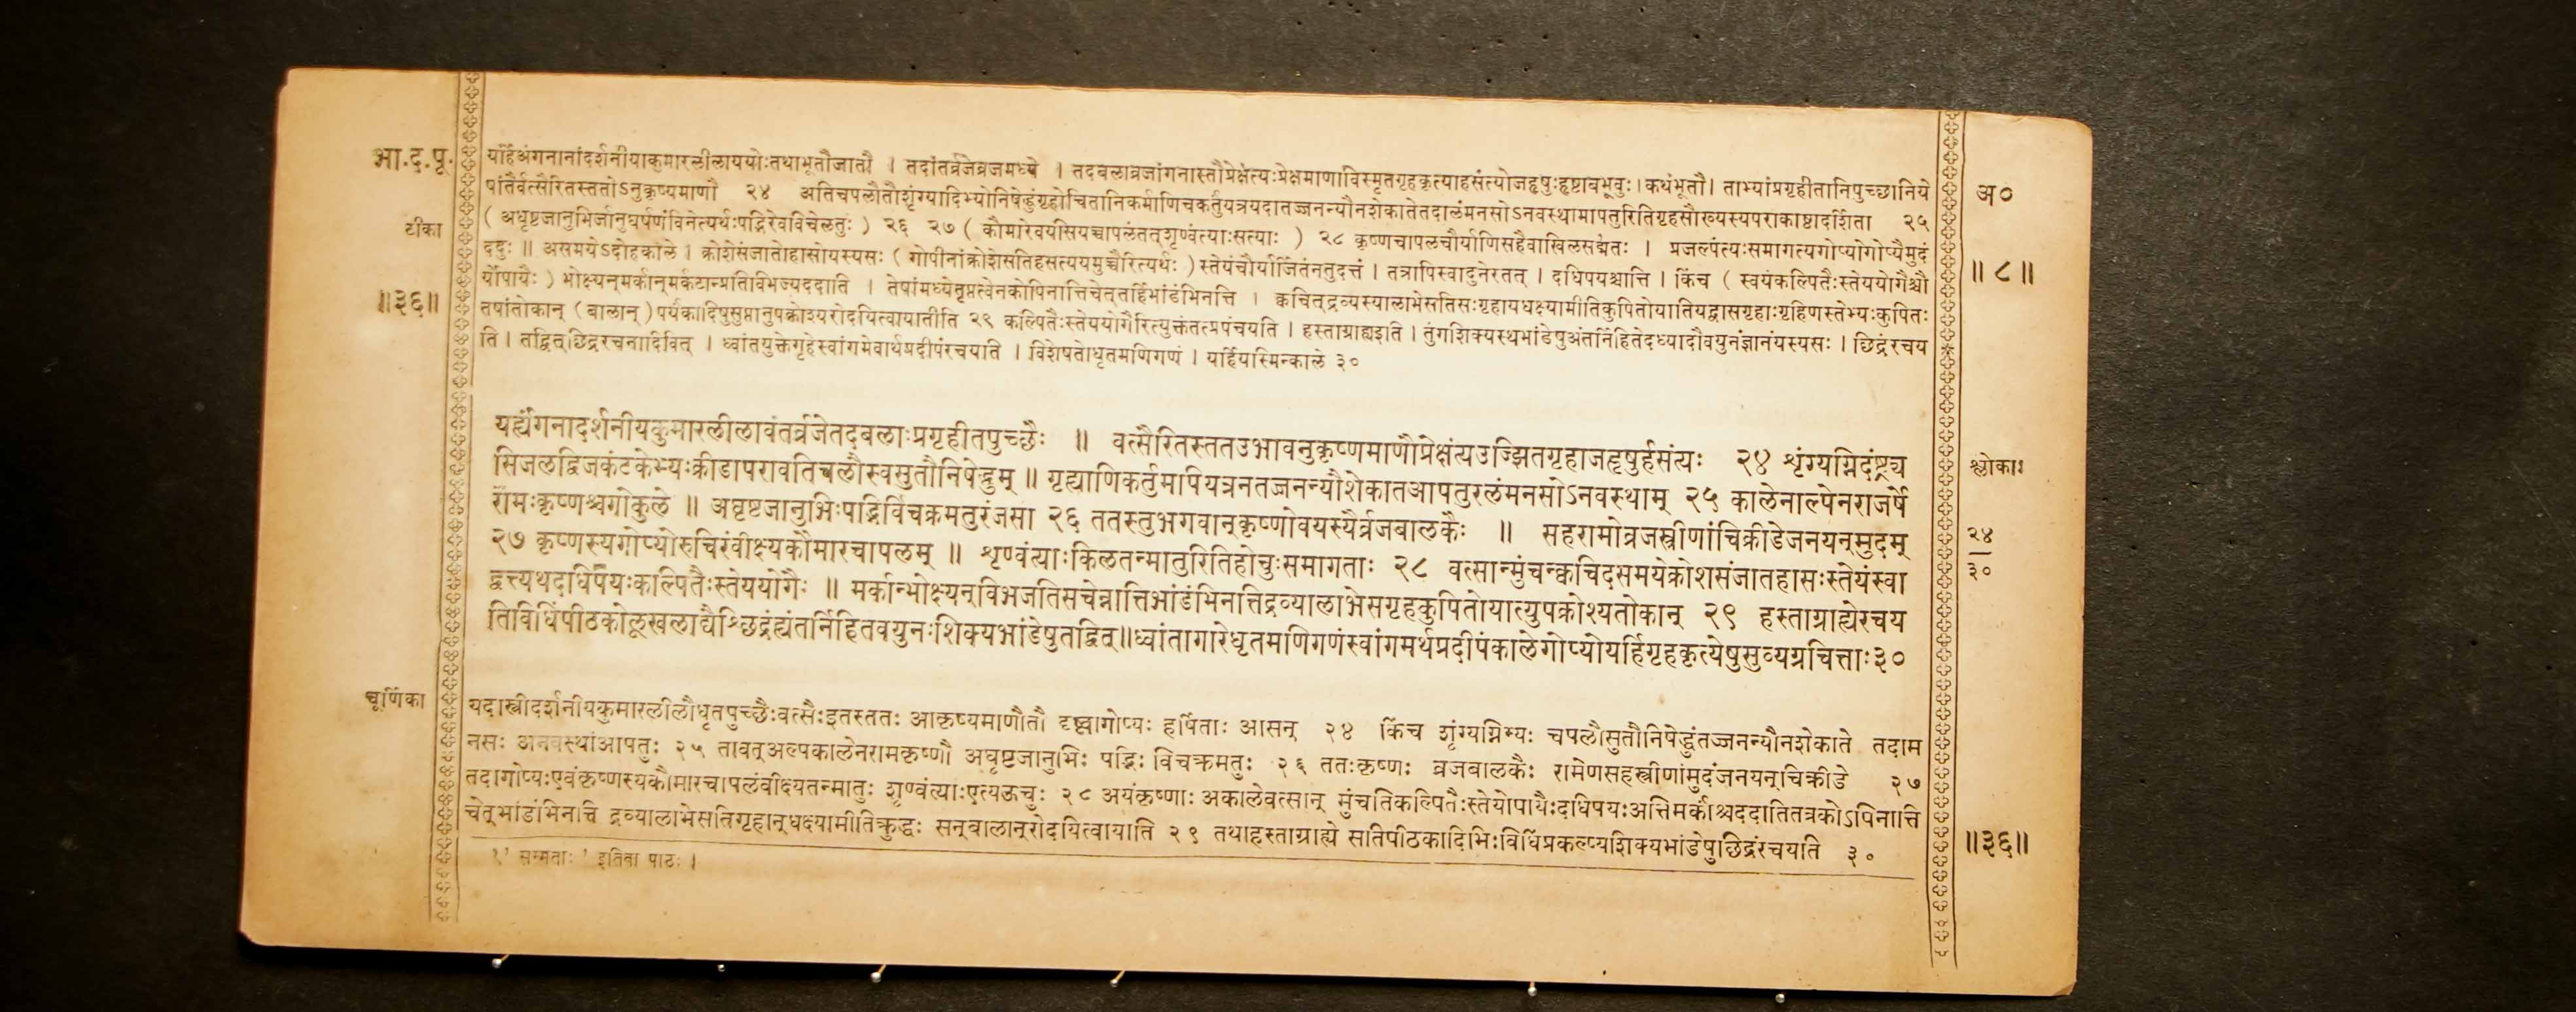 भा.द.पू.
यर्हिअंगनानांदर्शनीयाकुमारलीलाययोःतथाभूतौजातौ । तदांतर्व्रजेव्रजमध्ये । तदबलाव्रजांगनास्तौप्रेक्षंत्यःप्रेक्षमाणाविस्मृतगृहकृत्याहसंत्योजहृषुःहृष्टाबभूवुः। कथंभूतौ। ताभ्यांप्रगृहीतानिपुच्छानिये
अ०
षांतैर्वत्सैरितस्ततोऽनुकृष्यमाणौ २४ अतिचपलौतौशृंग्यादिभ्योनिषेद्धुंगृहोचितानिकर्माणिचकर्तुंयत्रयदातज्जनन्यौनशेकातेतदालंमनसोऽनवस्थामापतुरितिगृहसौख्यस्यपराकाष्ठादर्शिता २५
टीका
( अघृष्टजानुभिर्जानुघर्षणंविनेत्यर्थःपद्भिरेवविचेलतुः ) २६ २७ ( कौमारेवयसियच्चापलंतत्शृण्वंत्याःसत्याः ) २८ कृष्णचापलचौर्याणिसहैवाखिलसद्मतः । प्रजल्पंत्यःसमागत्यगोप्योगोप्यैमुदं
ददुः ॥ असमयेऽदोहकाले । क्रोशेसंजातोहासोयस्यसः ( गोपीनांक्रोशेसतिहसत्ययमुच्चैरित्यर्थः ) स्तेयंचौर्यार्जितंनतुदत्तं । तत्रापिस्वादुनेरतत् । दधिपयश्चात्ति । किंच ( स्वयंकल्पितैःस्तेययोगैश्चौ
॥ ८ ॥
॥३६॥
र्योपायैः ) भोक्ष्यन्मर्कान्मर्कटान्प्रतिविभज्यददाति । तेषांमध्येतृप्तत्वेनकोपिनात्तिचेत्तर्हिभांडंभिनत्ति । क्वचित्द्रव्यस्यालाभेसतिसःगृहायधक्ष्यामीतिकुपितोयातियद्वासगृहाःगृहिणस्तेभ्यःकुपितः
तषांतोकान् (बालान् ) पर्यंकादिषुसुप्तानुपक्रोश्यरोदयित्वायातीति २९ कल्पितैःस्तेययोगैरित्युक्तंतत्प्रपंचयति । हस्ताग्राह्यइति । तुंगशिक्यस्थभांडेषुअंतर्निहितेदध्यादौवयुनंज्ञानंयस्यसः । छिद्रंरचय
ति । तद्वित्छिद्ररचनादिवित् । ध्वांतयुक्तेगृहेस्वांगमेवार्थप्रदीपंरचयति । विशेषतोधृतमणिगणं । यर्हियस्मिन्काले ३०
यर्ह्यंगनादर्शनीयकुमारलीलावंतर्व्रजेतदबलाःप्रगृहीतपुच्छैः ॥ वत्सैरितस्ततउभावनुकृष्णमाणौप्रेक्षंत्यउज्झितगृहाजहृषुर्हसंत्यः २४ शृंग्यग्निदंष्ट्र्य
श्लोकाः
सिजलद्विजकंटकेभ्यःक्रीडापरावतिचलौस्वसुतौनिषेद्धुम् ॥ गृह्याणिकर्तुमपियत्रनतज्जनन्यौशेकातआपतुरलंमनसोऽनवस्थाम् २५ कालेनाल्पेनराजर्षे
रामःकृष्णश्चगोकुले ॥ अघृष्टजानुभिःपद्भिर्विचक्रमतुरंजसा २६ ततस्तुभगवान्कृष्णोवयस्यैर्व्रजबालकैः ॥ सहरामोव्रजस्त्रीणांचिक्रीडेजनयन्मुदम्
२४
३०
२७ कृष्णस्यगोप्योरुचिरंवीक्ष्यकौमारचापलम् ॥ शृण्वंत्याःकिलतन्मातुरितिहोचुःसमागताः २८ वत्सान्मुंचन्क्वचिदसमयेक्रोशसंजातहासःस्तेयंस्वा
द्वत्त्यथदधिपयःकल्पितैःस्तेययोगैः ॥ मर्कान्भोक्ष्यन्विभजतिसचेन्नात्तिभांडंभिनत्तिद्रव्यालाभेसगृहकुपितोयात्युपक्रोश्यतोकान् २९ हस्ताग्राह्येरचय
तिविधिंपीठकोलूखलाद्यैश्छिद्रंह्यंतर्निहितवयुनःशिक्यभांडेषुतद्वित्॥ध्वांतागारेधृतमणिगणंस्वांगमर्थप्रदीपंकालेगोप्योयर्हिगृहकृत्येषुसुव्यग्रचित्ताः३०
चूर्णिका
यदास्त्रीदर्शनीयकुमारलीलौधृतपुच्छैःवत्सैःइतस्ततः आकृष्यमाणौतौ दृष्ट्वागोप्यः हर्षिताः आसन् २४ किंच शृंग्यग्निभ्यः चपलौसुतौनिषेद्धुंतज्जनन्यौनशेकाते तदाम
नसः अनवस्थांआपतुः २५ तावत्अल्पकालेनरामकृष्णौ अघृष्टजानुभिः पद्भिः विचक्रमतुः २६ ततःकृष्णः व्रजबालकैः रामेणसहस्त्रीणांमुदंजनयन्चिक्रीडे २७
तदागोप्यःएवंकृष्णस्यकौमारचापलंवीक्ष्यतन्मातुः शृण्वंत्याःएत्यऊचुः २८ अयंकृष्णाः अकालेवत्सान् मुंचतिकल्पितैःस्तेयोपायैःदधिपयःअत्तिमर्कांश्चददातितत्रकोऽपिनात्ति
चेत्भांडंभिनत्ति द्रव्यालाभेसतिगृहान्धक्ष्यामीतिक्रुद्धः सन्बालान्रोदयित्वायाति २९ तथाहस्ताग्राह्ये सतिपीठकादिभिःविधिंप्रकल्प्यशिक्यभांडेषुछिद्रंरचयति ३०
॥३६॥
१' सन्मताः ' इतिवा पाठः ।